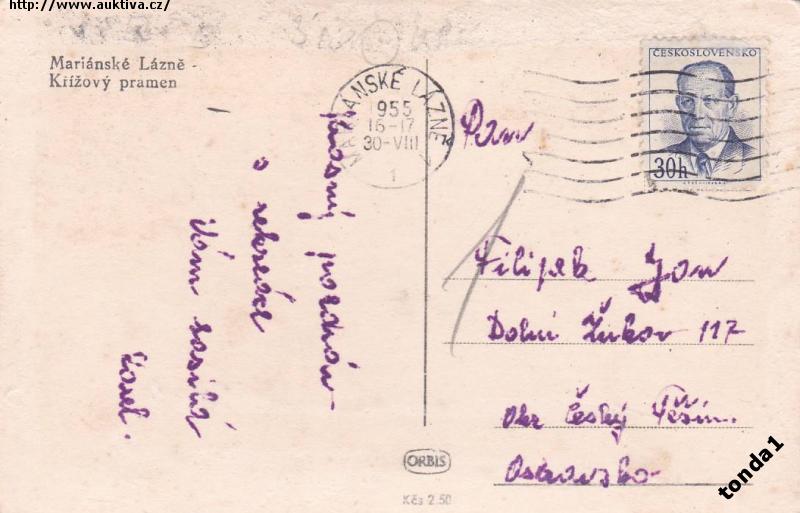 http://www.auktiva.cz/
Mariánské Lázně -
Křížový pramen
MARIÁNSKÉ LÁZNĚ
1955
16-17
30-VIII
1
ČESKOSLOVENSKO
30h
Pan
Filipek Jan
Dolní Žukov 117
Okr Český Těšín.
Ostravsko
pozdrav
z rekreace
Vám zasílá
ORBIS
Kčs 2.50
tonda1